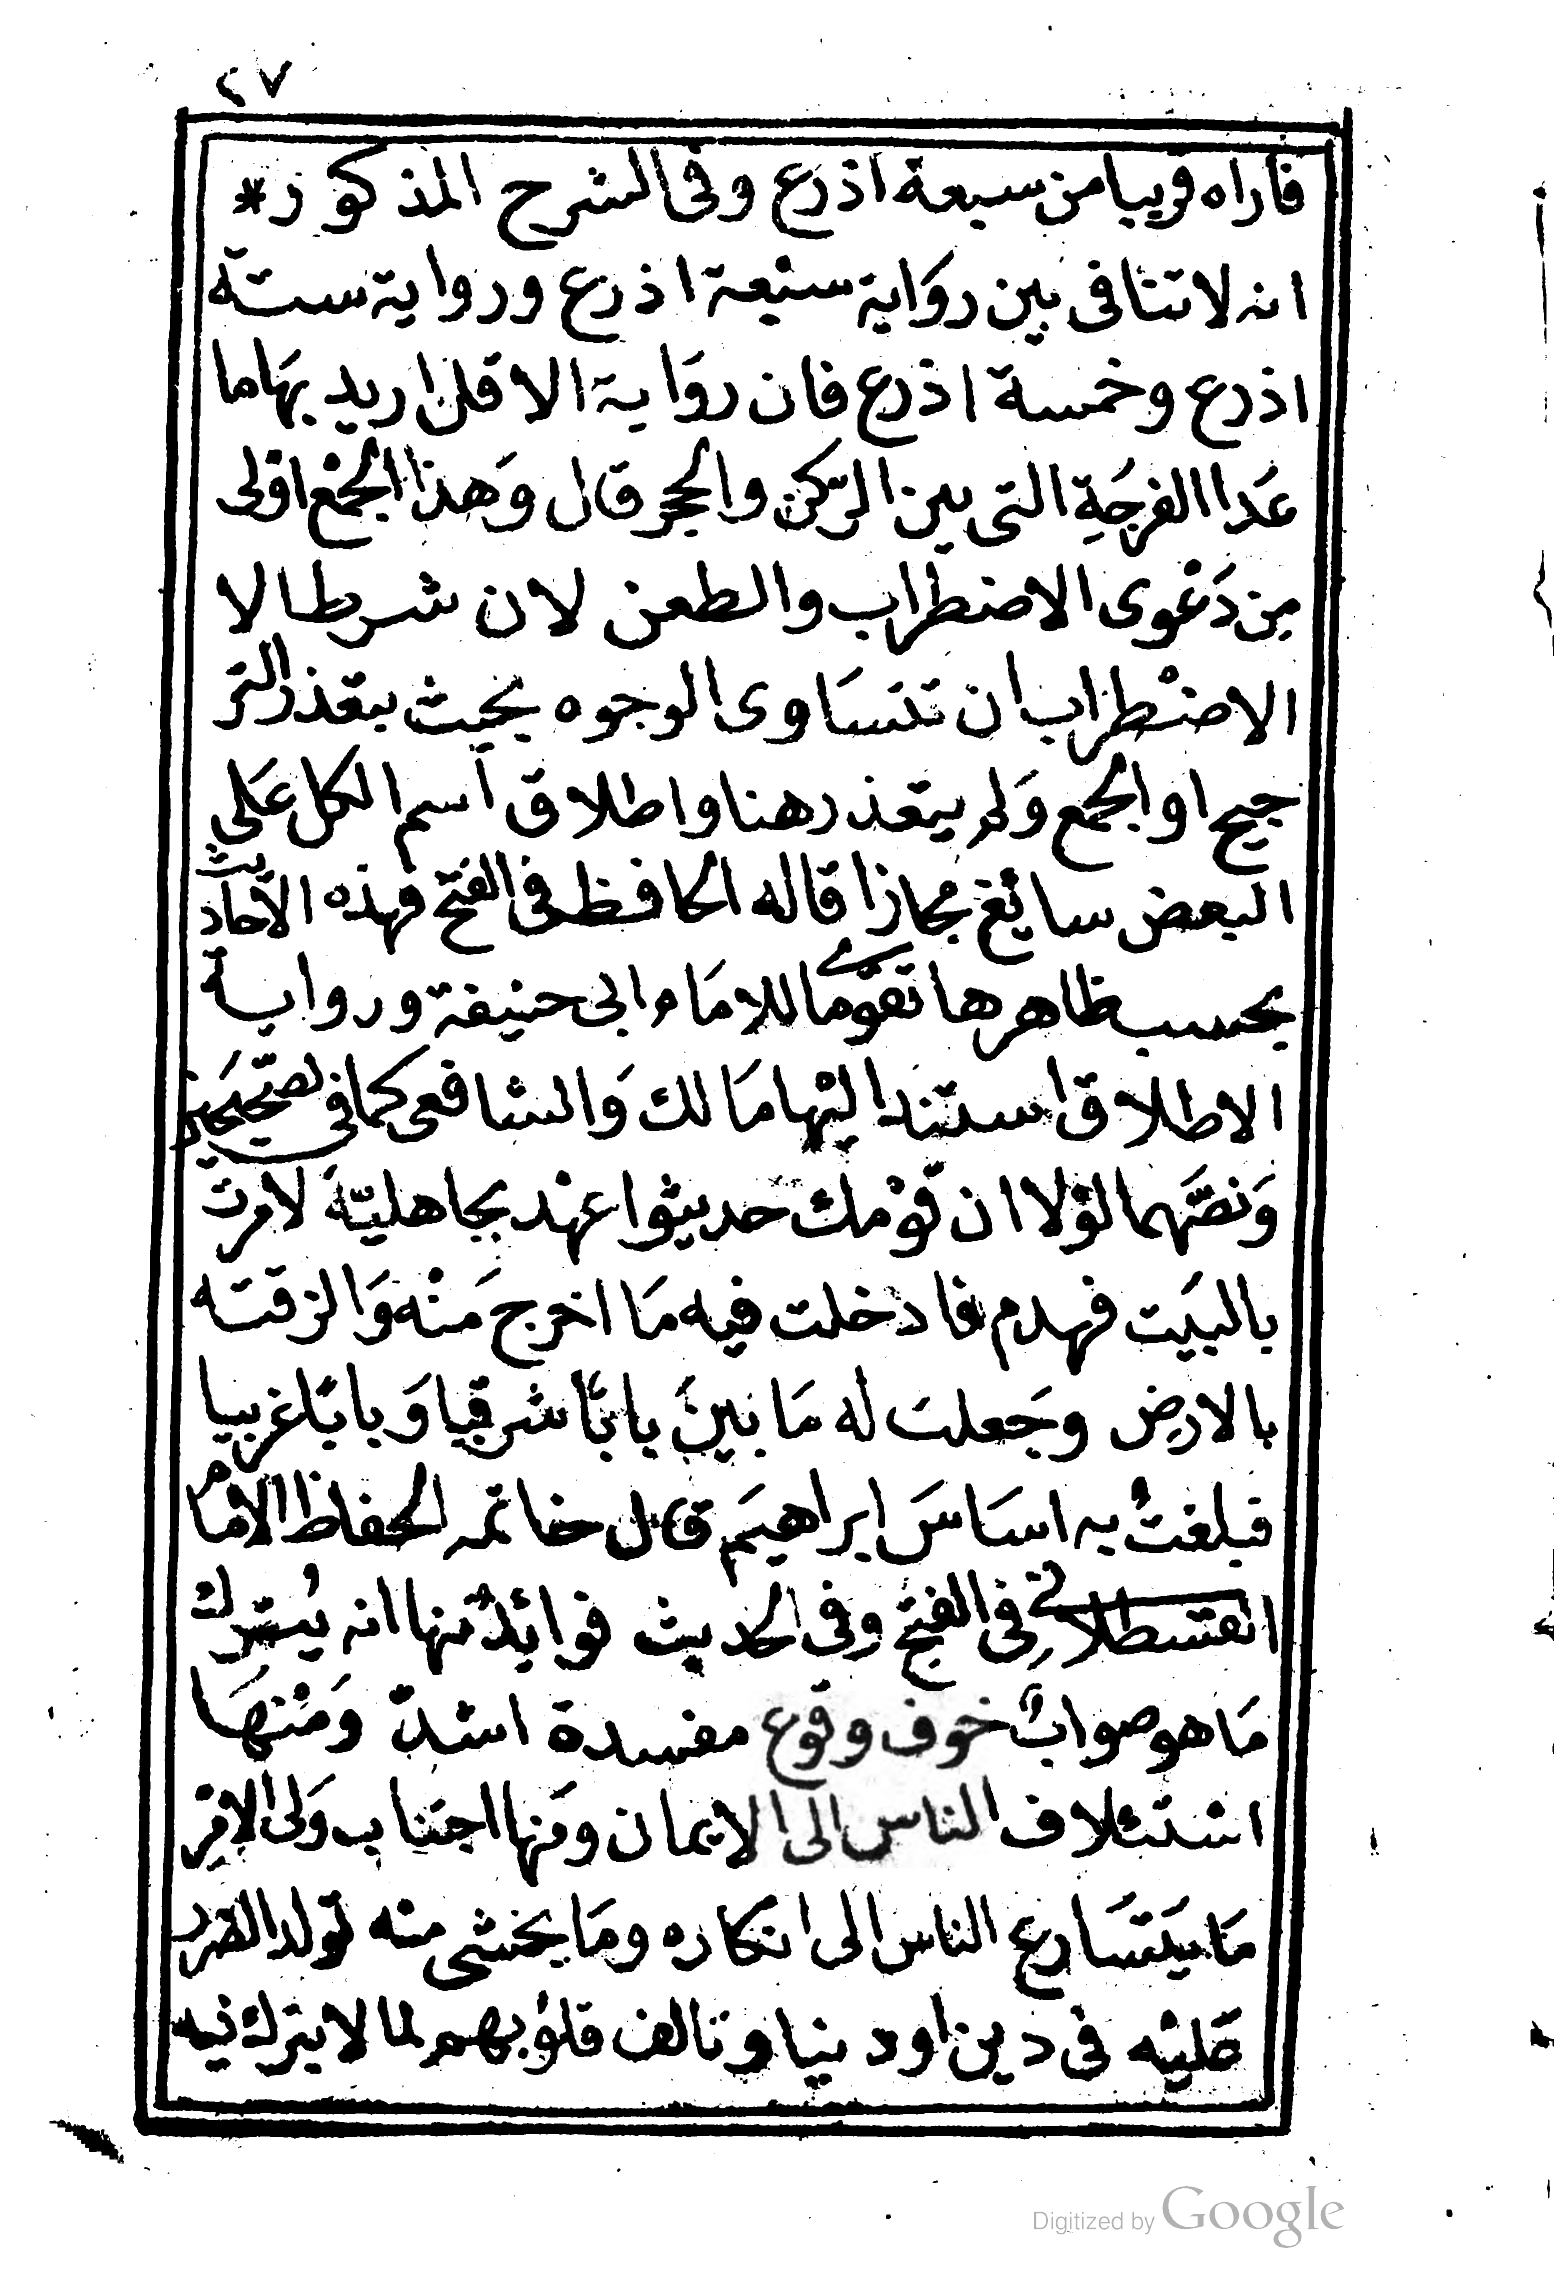 ٢٧
فاراه قريبا من سبعة اذرع وفى الشرح المذكور *
انه لا تنافى بين روَاية سبْعة اذرع ورواية ستة
اذرع وخمسة اذرع فان روَاية الاقل اريد بهَا ما
عَدا الفرجَةِ التى بين الرّكن والحجر قال وَهذا الجمْع اوْلى
مِن دَعْوى الاضطراب والطعن لان شرط الا
الاضْطراب ان تتسَاوى الوجوه بحيث يتعذر التر
جيح او الجمع وَلم يتعذر هنا واطلاق اسم الكل عَلى
البعض سائغ مجازا قاله الحافظ فى الفتح فهذه الاحاديث
بحسب ظاهرها تقوّى ما للامَام ابى حنيفة ورواية
الاطلاق استند اليْها مَالك وَالشافعى كما فى لصحيحَين
وَنصَّهما لوْلا ان قوْمك حديثوا عهْد بجاهليّة لامرت
بالبيَت فهدم فادخلت فيه مَا اخرج مَنْه وَالزقته
بالارض وجَعلت له مَا بينَ بابًا شرقيا وَبابًا غربيا
فبلغتُ به اسَاسَ ابراهيَم قال خاتمه الحفاظ الامام
القسْطلانى فِى الفتح وفى الحديث فوائدُ منها انه يُترك
مَا هو صوابٌ خوف وقوع مفسدة اشدّ وَمْنهَا
اسْتئلاف الناس الى الايمان ومَنها اجتناب وَلى الامْر
مَا يتَسَارع الناس الى انكاره ومَا يخشى منه تولد الضرر
عَليْه فى دين او دنيا وتالف قلوْبهم لما لا يترك فيه
Digitized by Google